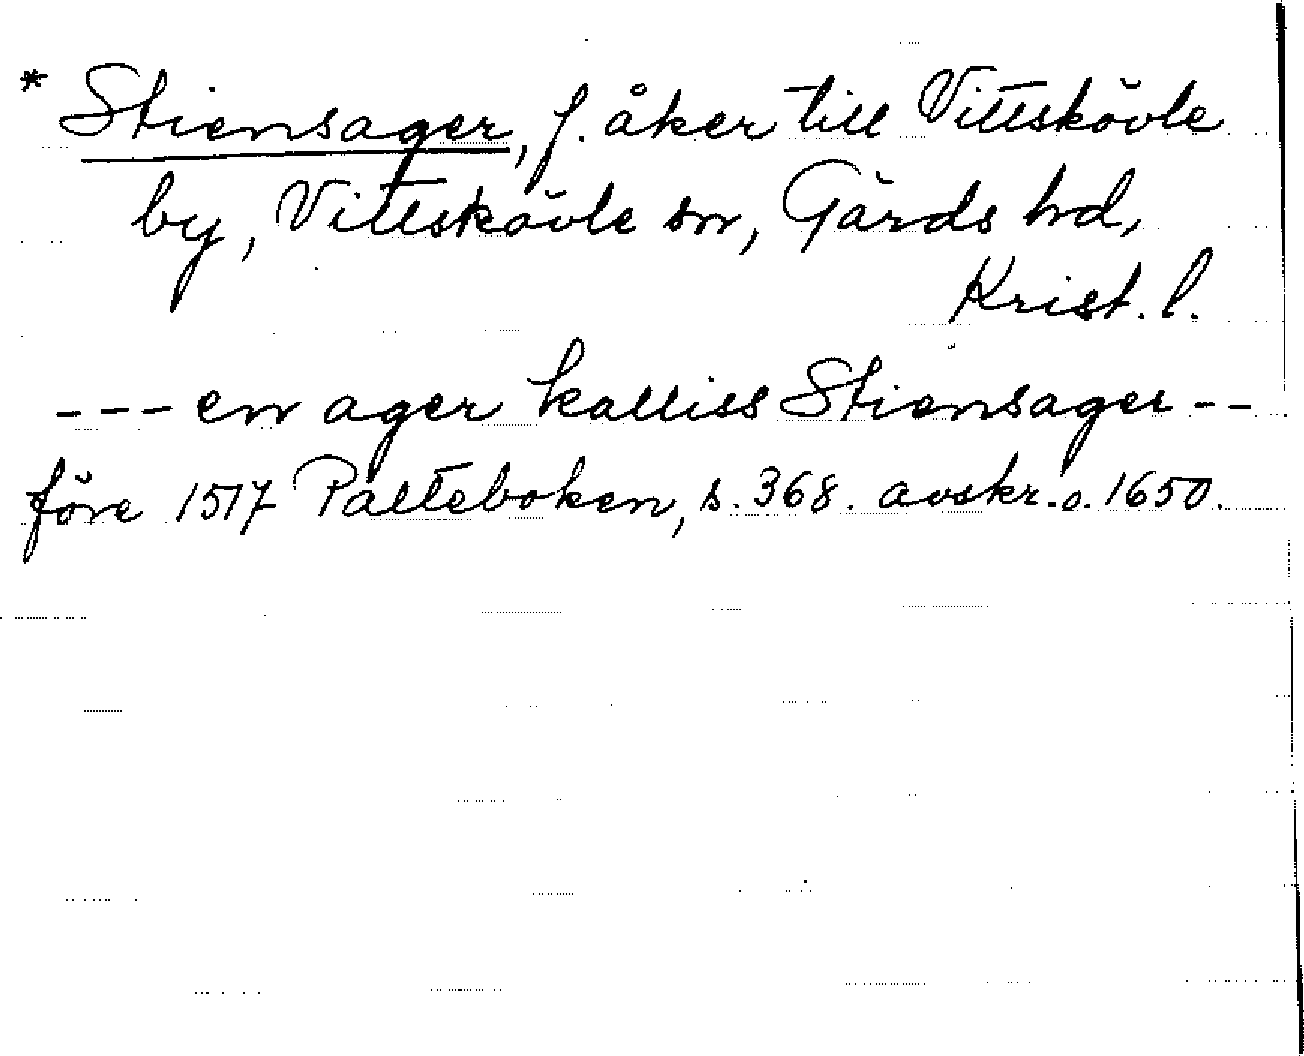 * Stiensager, f. åker till Vittskövle
by, Vittskövle sn, Gärds hd,
Krist. l.
--- en ager kalliss Stiensager --
före 1517 Palteboken, s. 368. avskr. o. 1650.